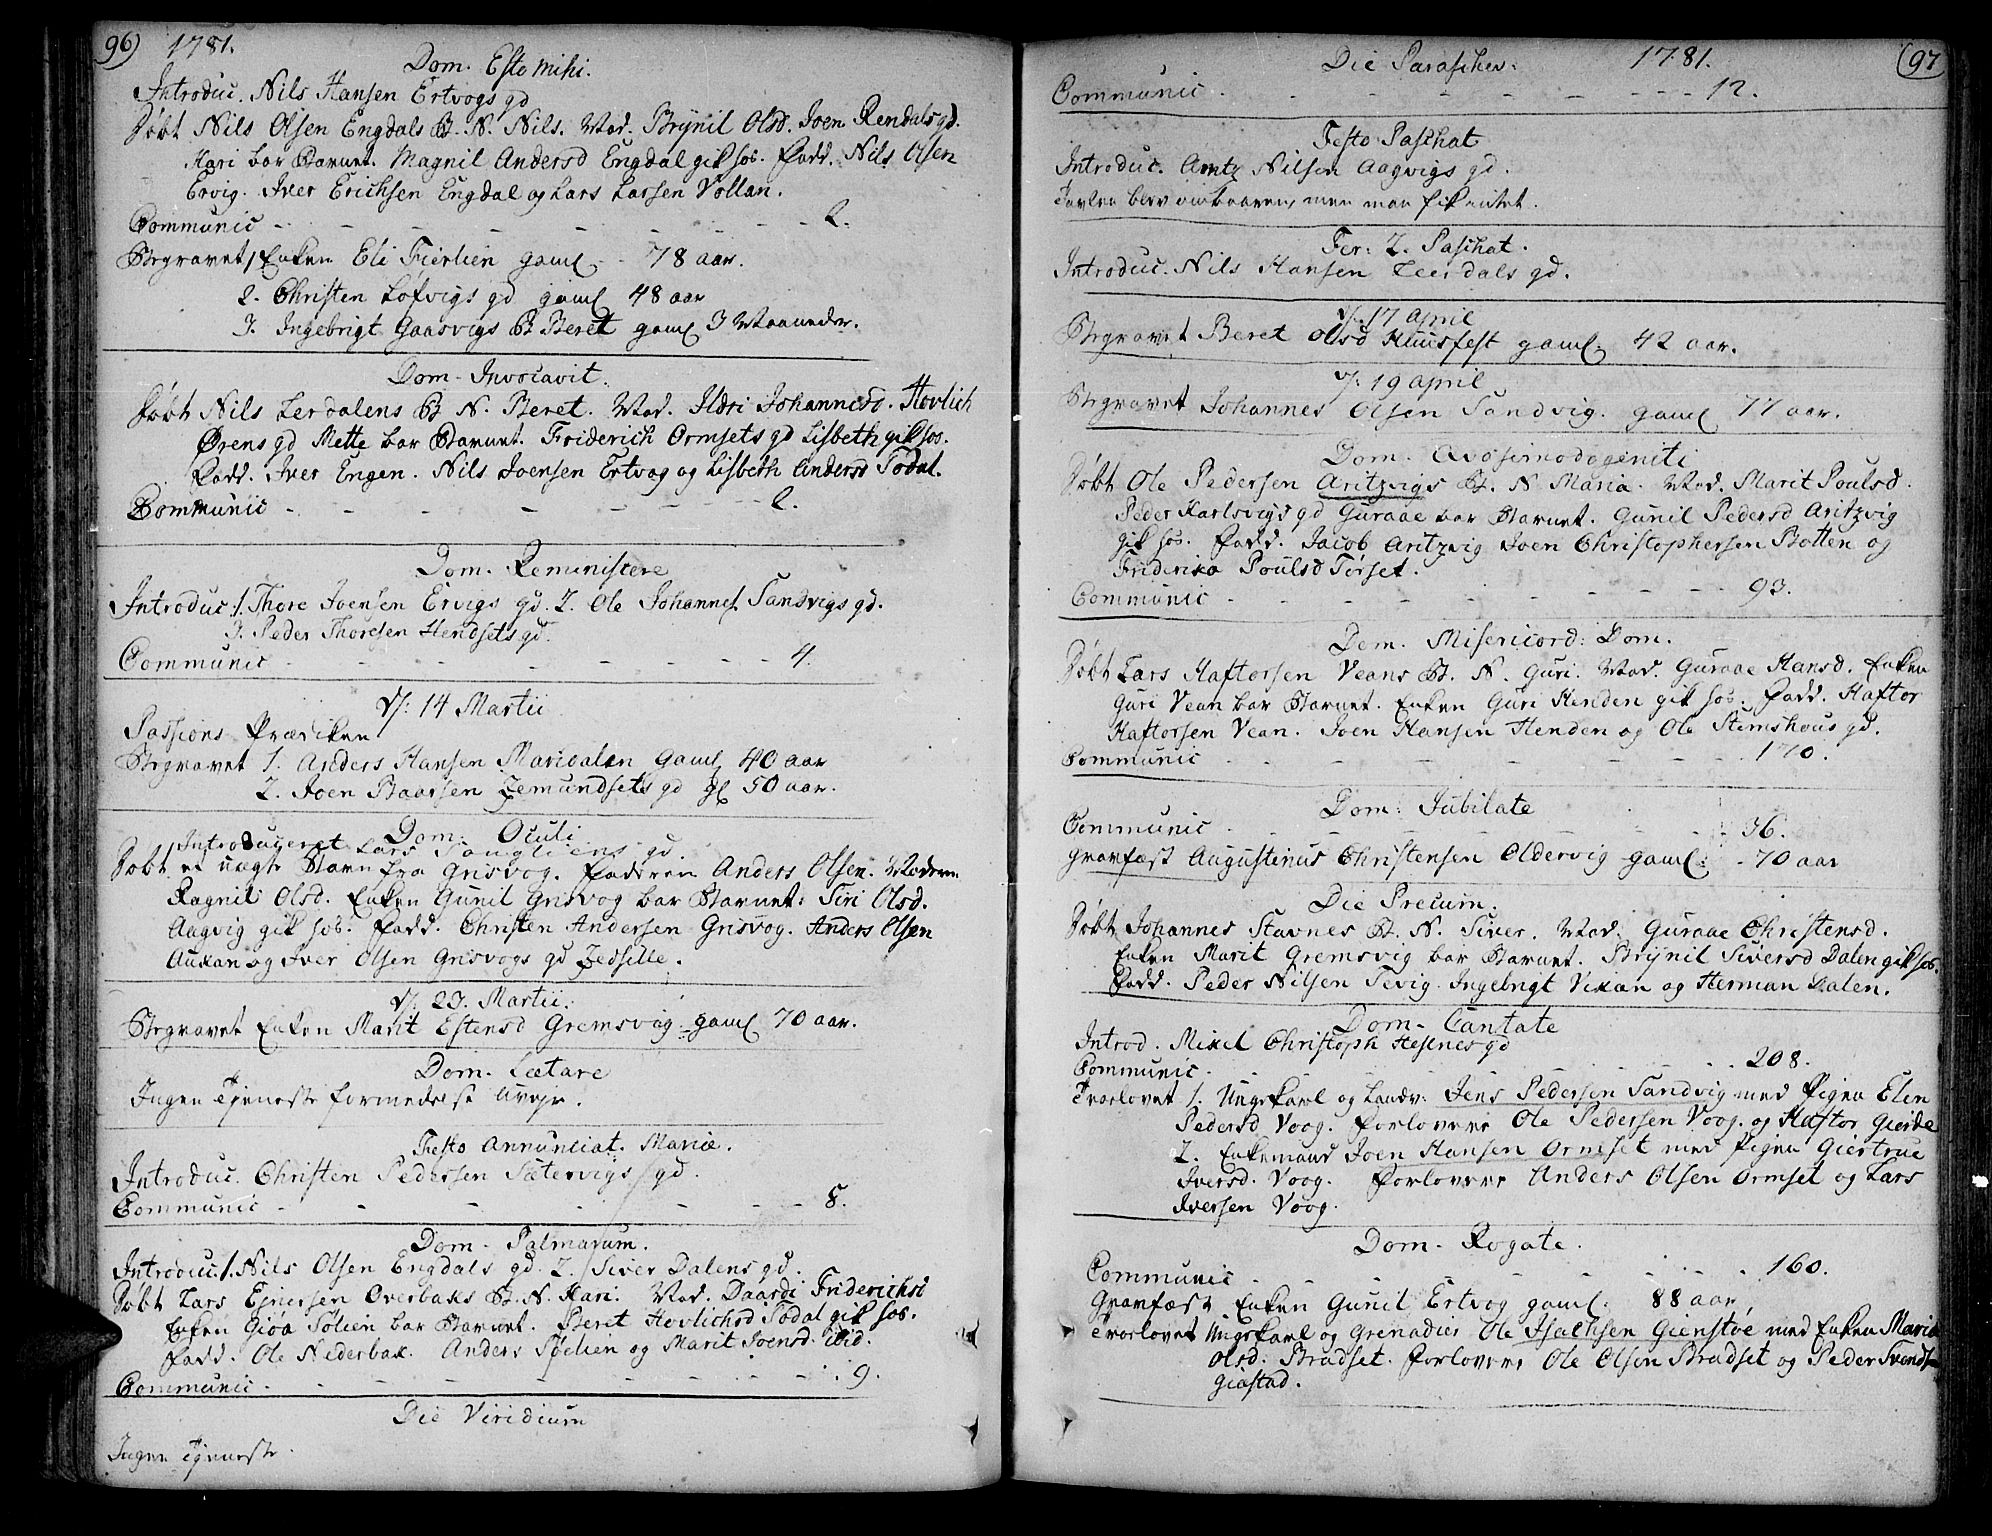 96) 1781.
Dom. Esto mihi.
Introduc. Nils Hansen Ertvogs gd
Døbt Nils Olsen Engdals B. N. Nils. Mod. Brynil Olsd. Joen Rendals gd.
Kari bar Barnet. Magnil Andersd Engdal gik hos. Fadd. Nils Olsen
Ervig. Iver Erichsen Engdal og Lars Larsen Vollan.
Communic - - - 2.
Begravet 1. Enken Eli Fierlien gaml - 78 aar.
2. Christen Løfvigs gd gaml 48 aar
3. Ingebrigt Gaasvigs B. Beret gaml 3 Maaneder.
Dom. Invocavit.
Døbt Nils Lerdalens B. N. Beret. Mod. Ildri Johannesd. Hovlich
Ørens gd Mette bar Barnet. Friderich Ormsets gd Lisbeth gik hos.
Fadd. Iver Engen. Nils Joensen Ertvog og Lisbeth Andersd Todal.
Communic - - - 2.
Dom. Reministere
Introduc. 1. Thore Joensen Ervigs gd. 2. Ole Johannes. Sandvigs gd.
3. Peder Thoresen Hendsets gd.
Communic - - - 4.
d/: 14 Martii
Passions Prædiken
Begravet 1. Anders Hansen Maridalen gaml 40 aar
2. Joen Baarsen Zemundsets gd gl 50 aar.
Dom. Oculi
Introduceret Lars Tangliens gd.
Døbt et uægte Barn fra Grisvog. Faderen Anders Olsen. Moderen
Ragnil Olsd. Enken Gunil Grisvog bar Barnet. Siri Olsd.
Aagvig gik hos. Fadd. Christen Andersen Grisvog. Anders Olsen
Aukan og Iver Olsen Grisvogs gd Zedsille.
d/. 23. Martii.
Begravet Enken Marit Estensd Gremsvig gaml 70 aar.
Dom. Lætare
Ingen Tjeneste formedelst Uvejr.
Festo Annunciat. Mariæ.
Introduc. Christen Pedersen Sætervigs gd.
Communic - - - 8.
Dom. Palmarum.
Introduc. 1. Nils Olsen Engdals gd. 2. Siver Dalens gd.
Døbt Lars Ejnersen Overbaks B. N. Kari. Mod. Daardi Friderichsd
Enken Gioa Sølien bar Barnet. Beret Hovlichsd Todal gik hos.
Fadd. Ole Nederbak. Anders Søelien og Marit Joensd. ibid.
Communic - - - 9.
Die Viridium
Ingen Tjeneste.
Die Parascheu: 1781. (97
Communic - - - 12.
Festo Paschat
Introduc. Arntz Nilsen Aagvigs gd.
Tavlen blev ombaaren, men man fik intet.
Fer: 2. Paschat.
Introduc. Nils Hansen Leerdals gd.
d/. 17 April
Begravet Beret Olsd Huusfest gaml. 42 aar.
d/: 19 April
Begravet Johannes Olsen Sandvig. gaml 77 aar.
Dom. Qvasimodogeniti
Døbt Ole Pedersen Aritzvigs B. N. Maria. Mod. Marit Poulsd.
Peder Karlsvigs gd Guraae bar Barnet. Gunil Pedersd Aritzvig
gik hos. Fadd. Jacob Aritzvig Joen Christophersen Botten og
Friderika Poulsd Torset.
Communic - - - 93.
Dom. Misericord: Dom.
Døbt Lars Haftorsen Veans B. N. Guri. Mod. Guraae Hansd. Enken
Guri Vean bar Barnet. Enken Guri Henden gik hos. Fadd. Haftor
Haftorsen Vean. Joen Hansen Henden og Ole Stemshous gd.
Communic - - - 170.
Dom: Jubilate
Communic - - - 36.
Gravfæst Augustinus Christensen Oldervig gaml: - 70 aar
Die Precum.
Døbt Johannes Stavnes B. N. Siver. Mod. Guraae Christensd.
Enken Marit Gremsvig bar Barnet. Brynil Siversd Dalen gik hos.
Fadd. Peder Nilsen Tevig. Ingebrigt Vikan og Herman Dalen.
Dom. Cantate
Introd. Mikel Christoph Hesnes gd
Communic - - - 208.
Trorlovet 1. Ungekarl og Landv: Jens Pedersen Sandvig med Pigen Elen
Pedersd Voog. Forlovere Ole Pedersen Voog. og Haftor Gierde
2. Enkemand Joen Hansen Ormset med Pigen Giertrue
Iversd. Voog. Forlovere Anders Olsen Ormset og Lars
Iversen Voog.
Dom. Rogate.
Communic - - - 160.
Gravfæst Enken Gunil Ertvog gaml. 88 aar
Trorlovet Ungekarl og Grenadier Ole Isachsen Gienstøe med Enken Marit
Olsd. Bradset. Forlovere Ole Olsen Bradset og Peder Svends
Giøstad.